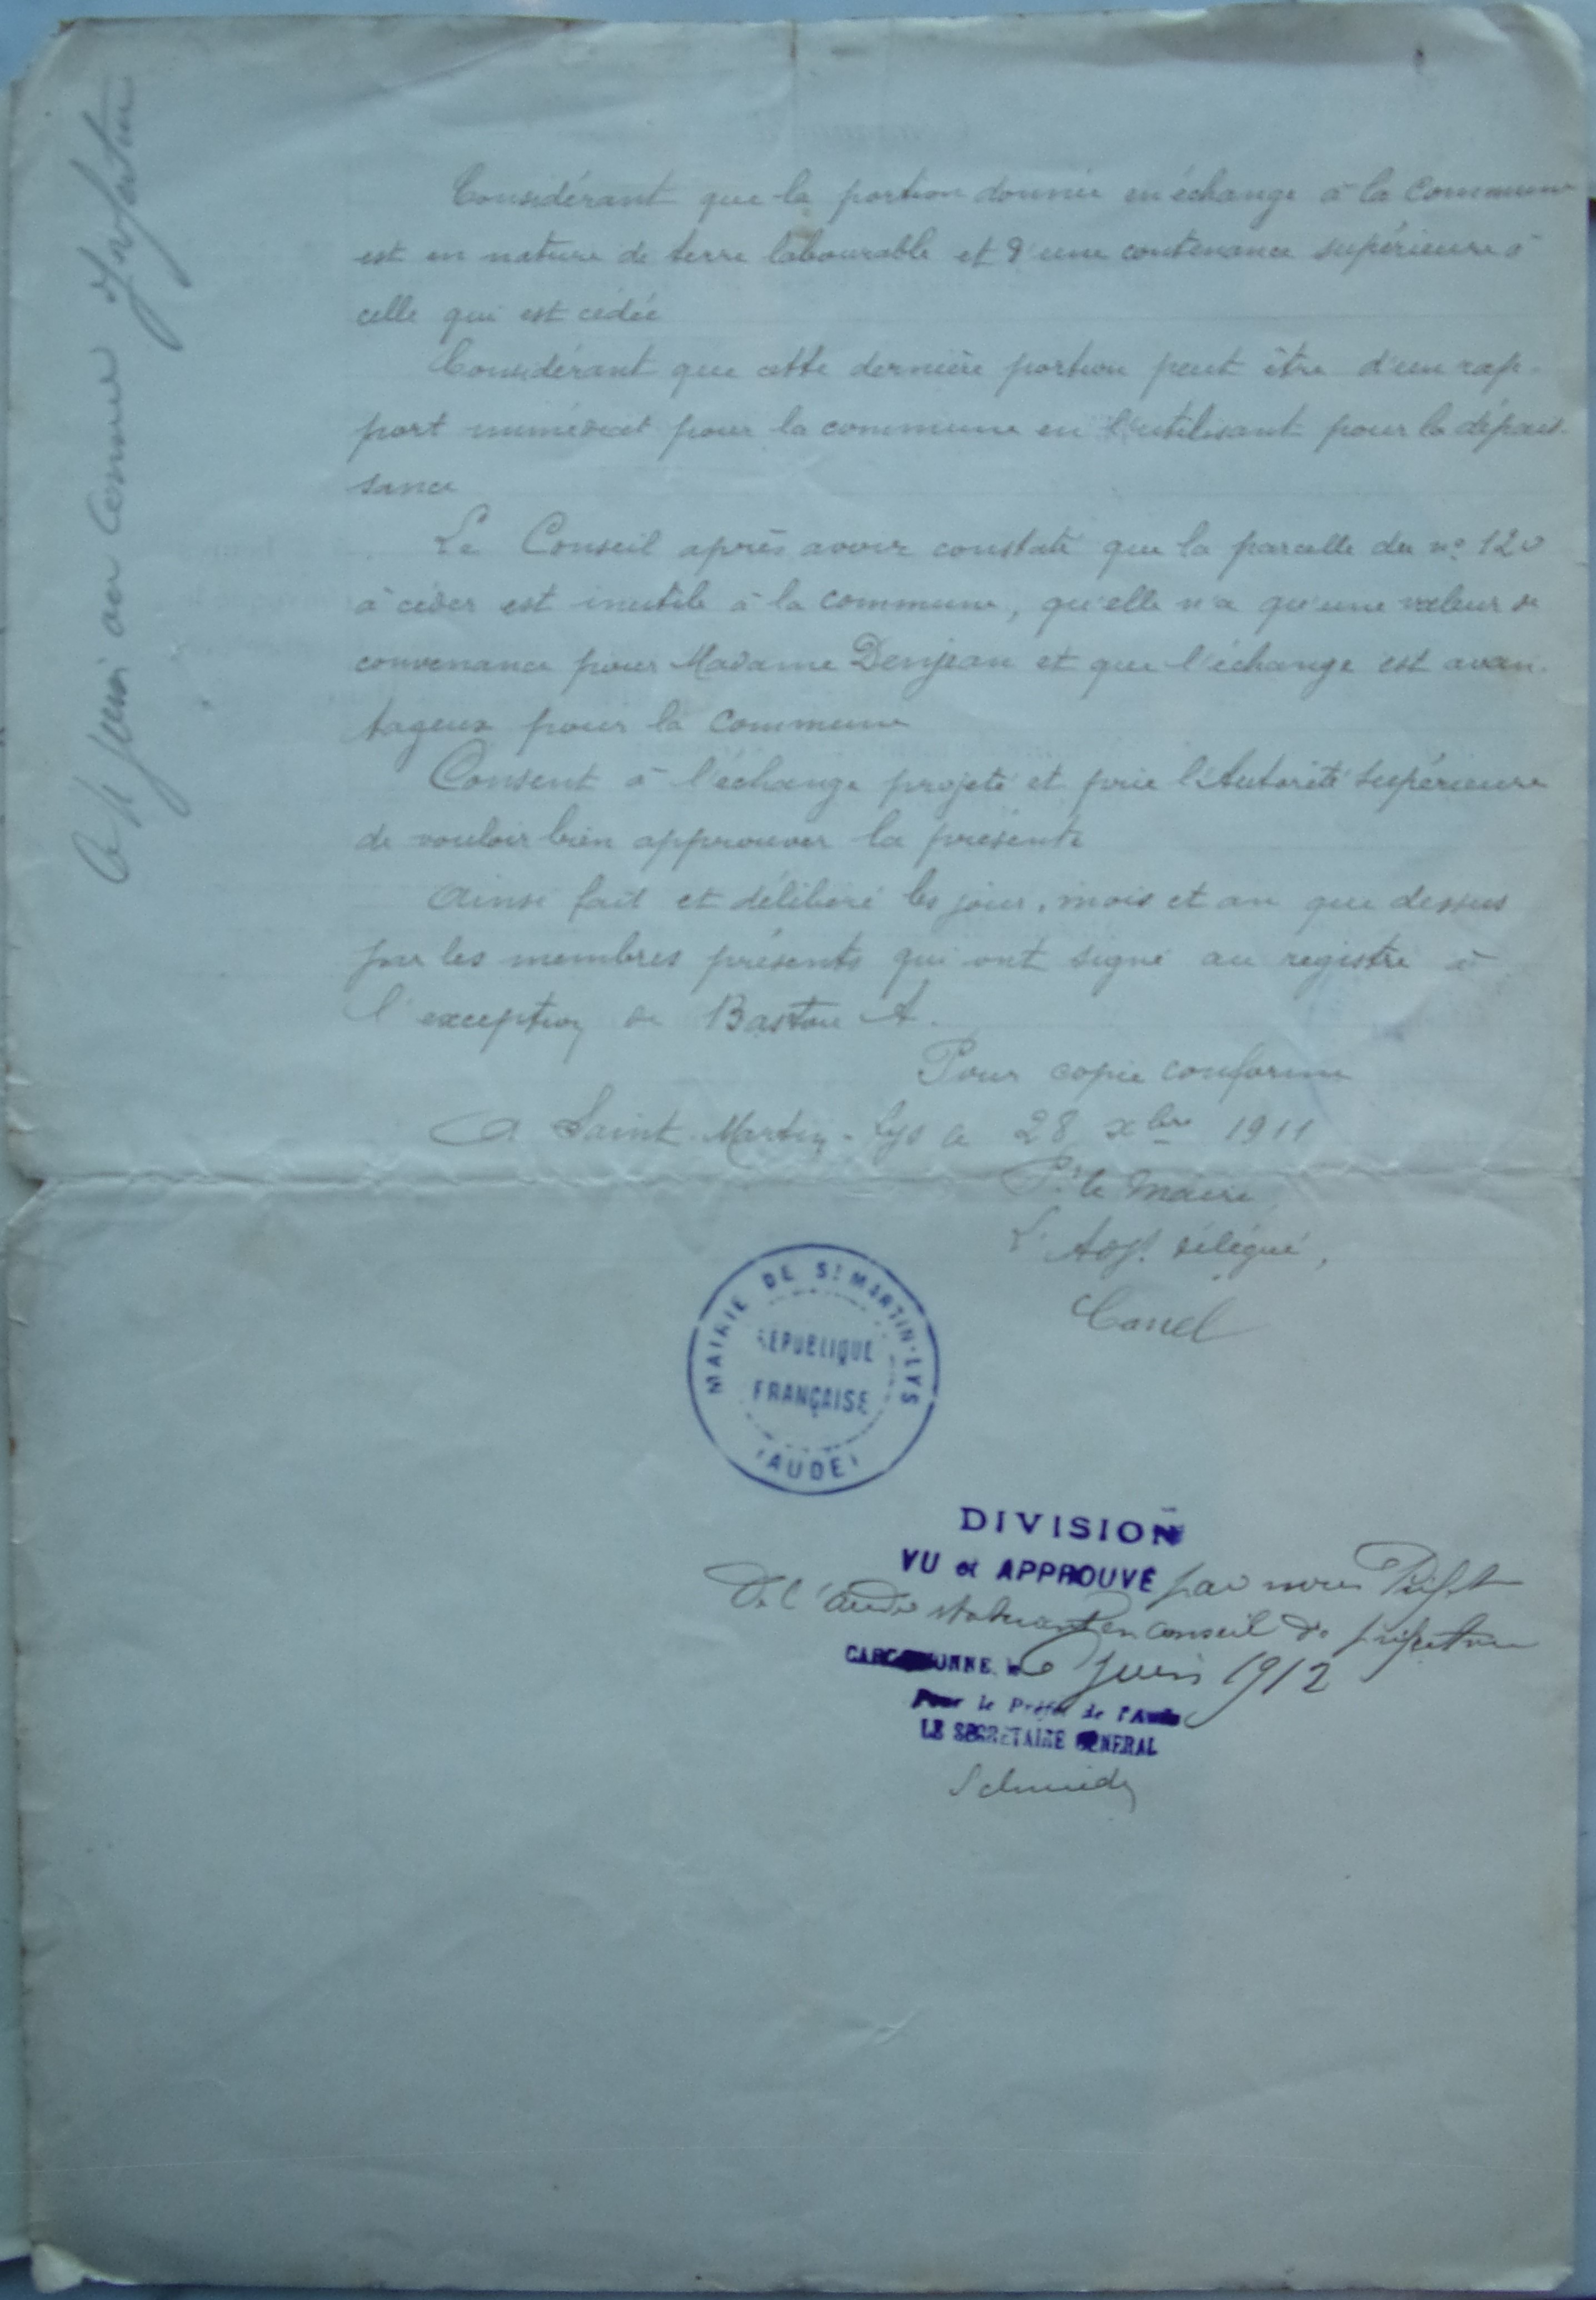 Considérant que la portion donnée en échange à la Commune
est en nature de terre labourable et d'une contenance supérieure à
celle qui est cédée
Considérant que cette dernière portion peut être d'un rap-
port immédiat pour la commune en l'utilisant pour la dépais-
sance
Le Conseil après avoir constaté que la parcelle du nº 120
à céder est inutile à la commune, qu'elle n'a qu'une valeur de
convenance pour Madame Denjean et que l'échange est avan-
tageux pour la Commune
Consent à l'échange projeté et prie l'Autorité Supérieure
de vouloir bien approuver la présente
Ainsi fait et délibéré les jour, mois et an que dessus
par les membres présents qui ont signé au registre à
l'exception de Bastou A.
Pour copie conforme
A Saint-Martin-Lys le 28 xbre 1911
Pr le Maire
L'Adjt délégué,
Canel
MAIRIE DE ST MARTIN-LYS
RÉPUBLIQUE
FRANÇAISE
(AUDE)
DIVISION
VU et APPROUVÉ par nous Préfet
De l'Aude statuant en conseil de préfecture
CARCASSONNE, le 6 Juin 1912
Pour le Préfet de l'Aude
LE SECRETAIRE GENERAL